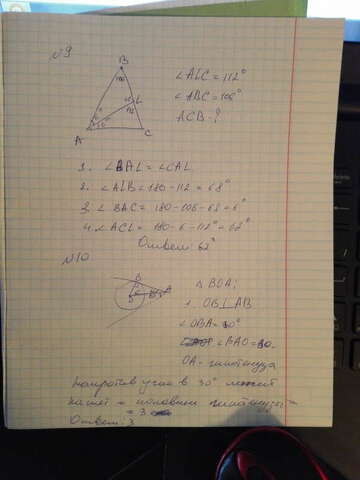 №9
B
106°
68° L
112
6°
A C
∠ALC = 112°
∠ABC = 106°
ACB - ?
1. ∠BAL = ∠CAL
2. ∠ALB = 180 - 112 = 68°
3. ∠BAC = 180 - 106 - 68 = 6°
4. ∠ACL = 180 - 6 - 112° = 62°
Ответ: 62°
№10
B
A
△BOA;
1. OB⊥AB
∠OBA = 90°
∠BAO = 30.
OA - гипотенуза
Напротив угла в 30° лежит
катет = половине гипотенузы =
= 3
Ответ: 3